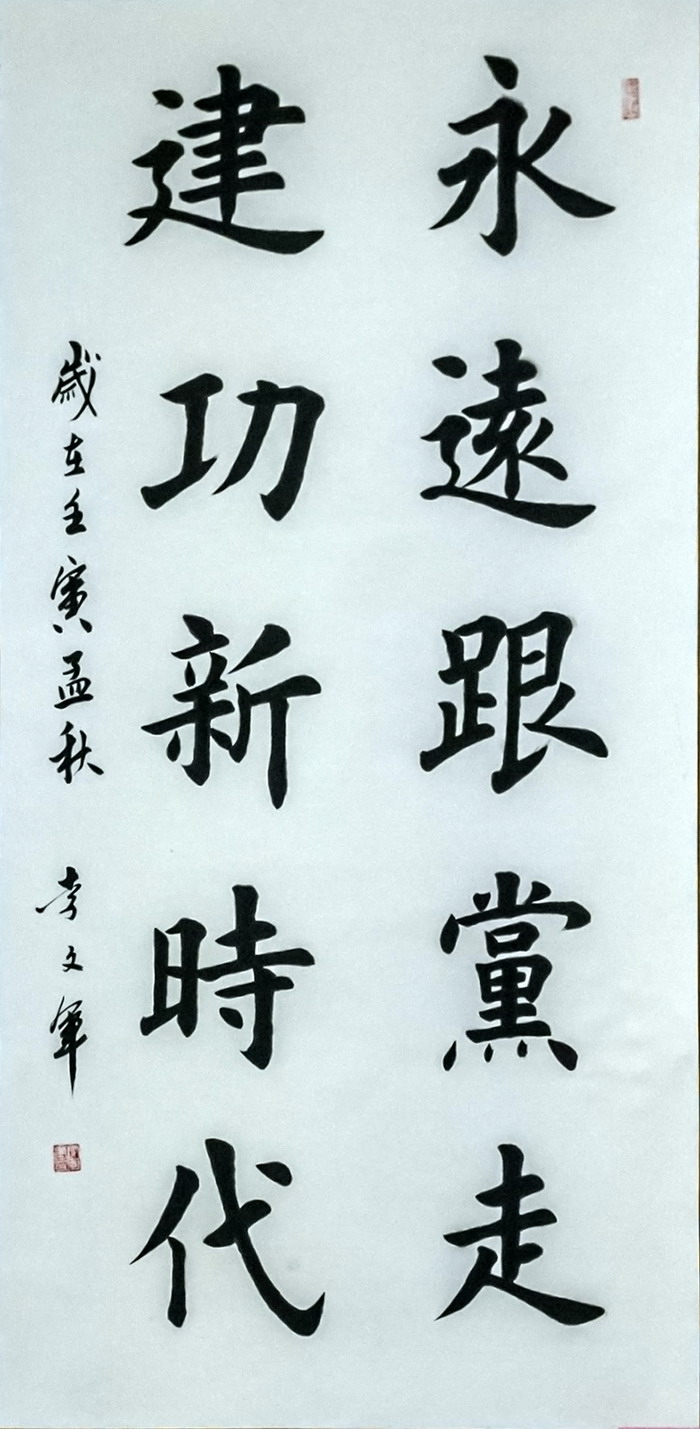 永遠跟黨走
建功新時代
歲在壬寅孟秋 李文軍